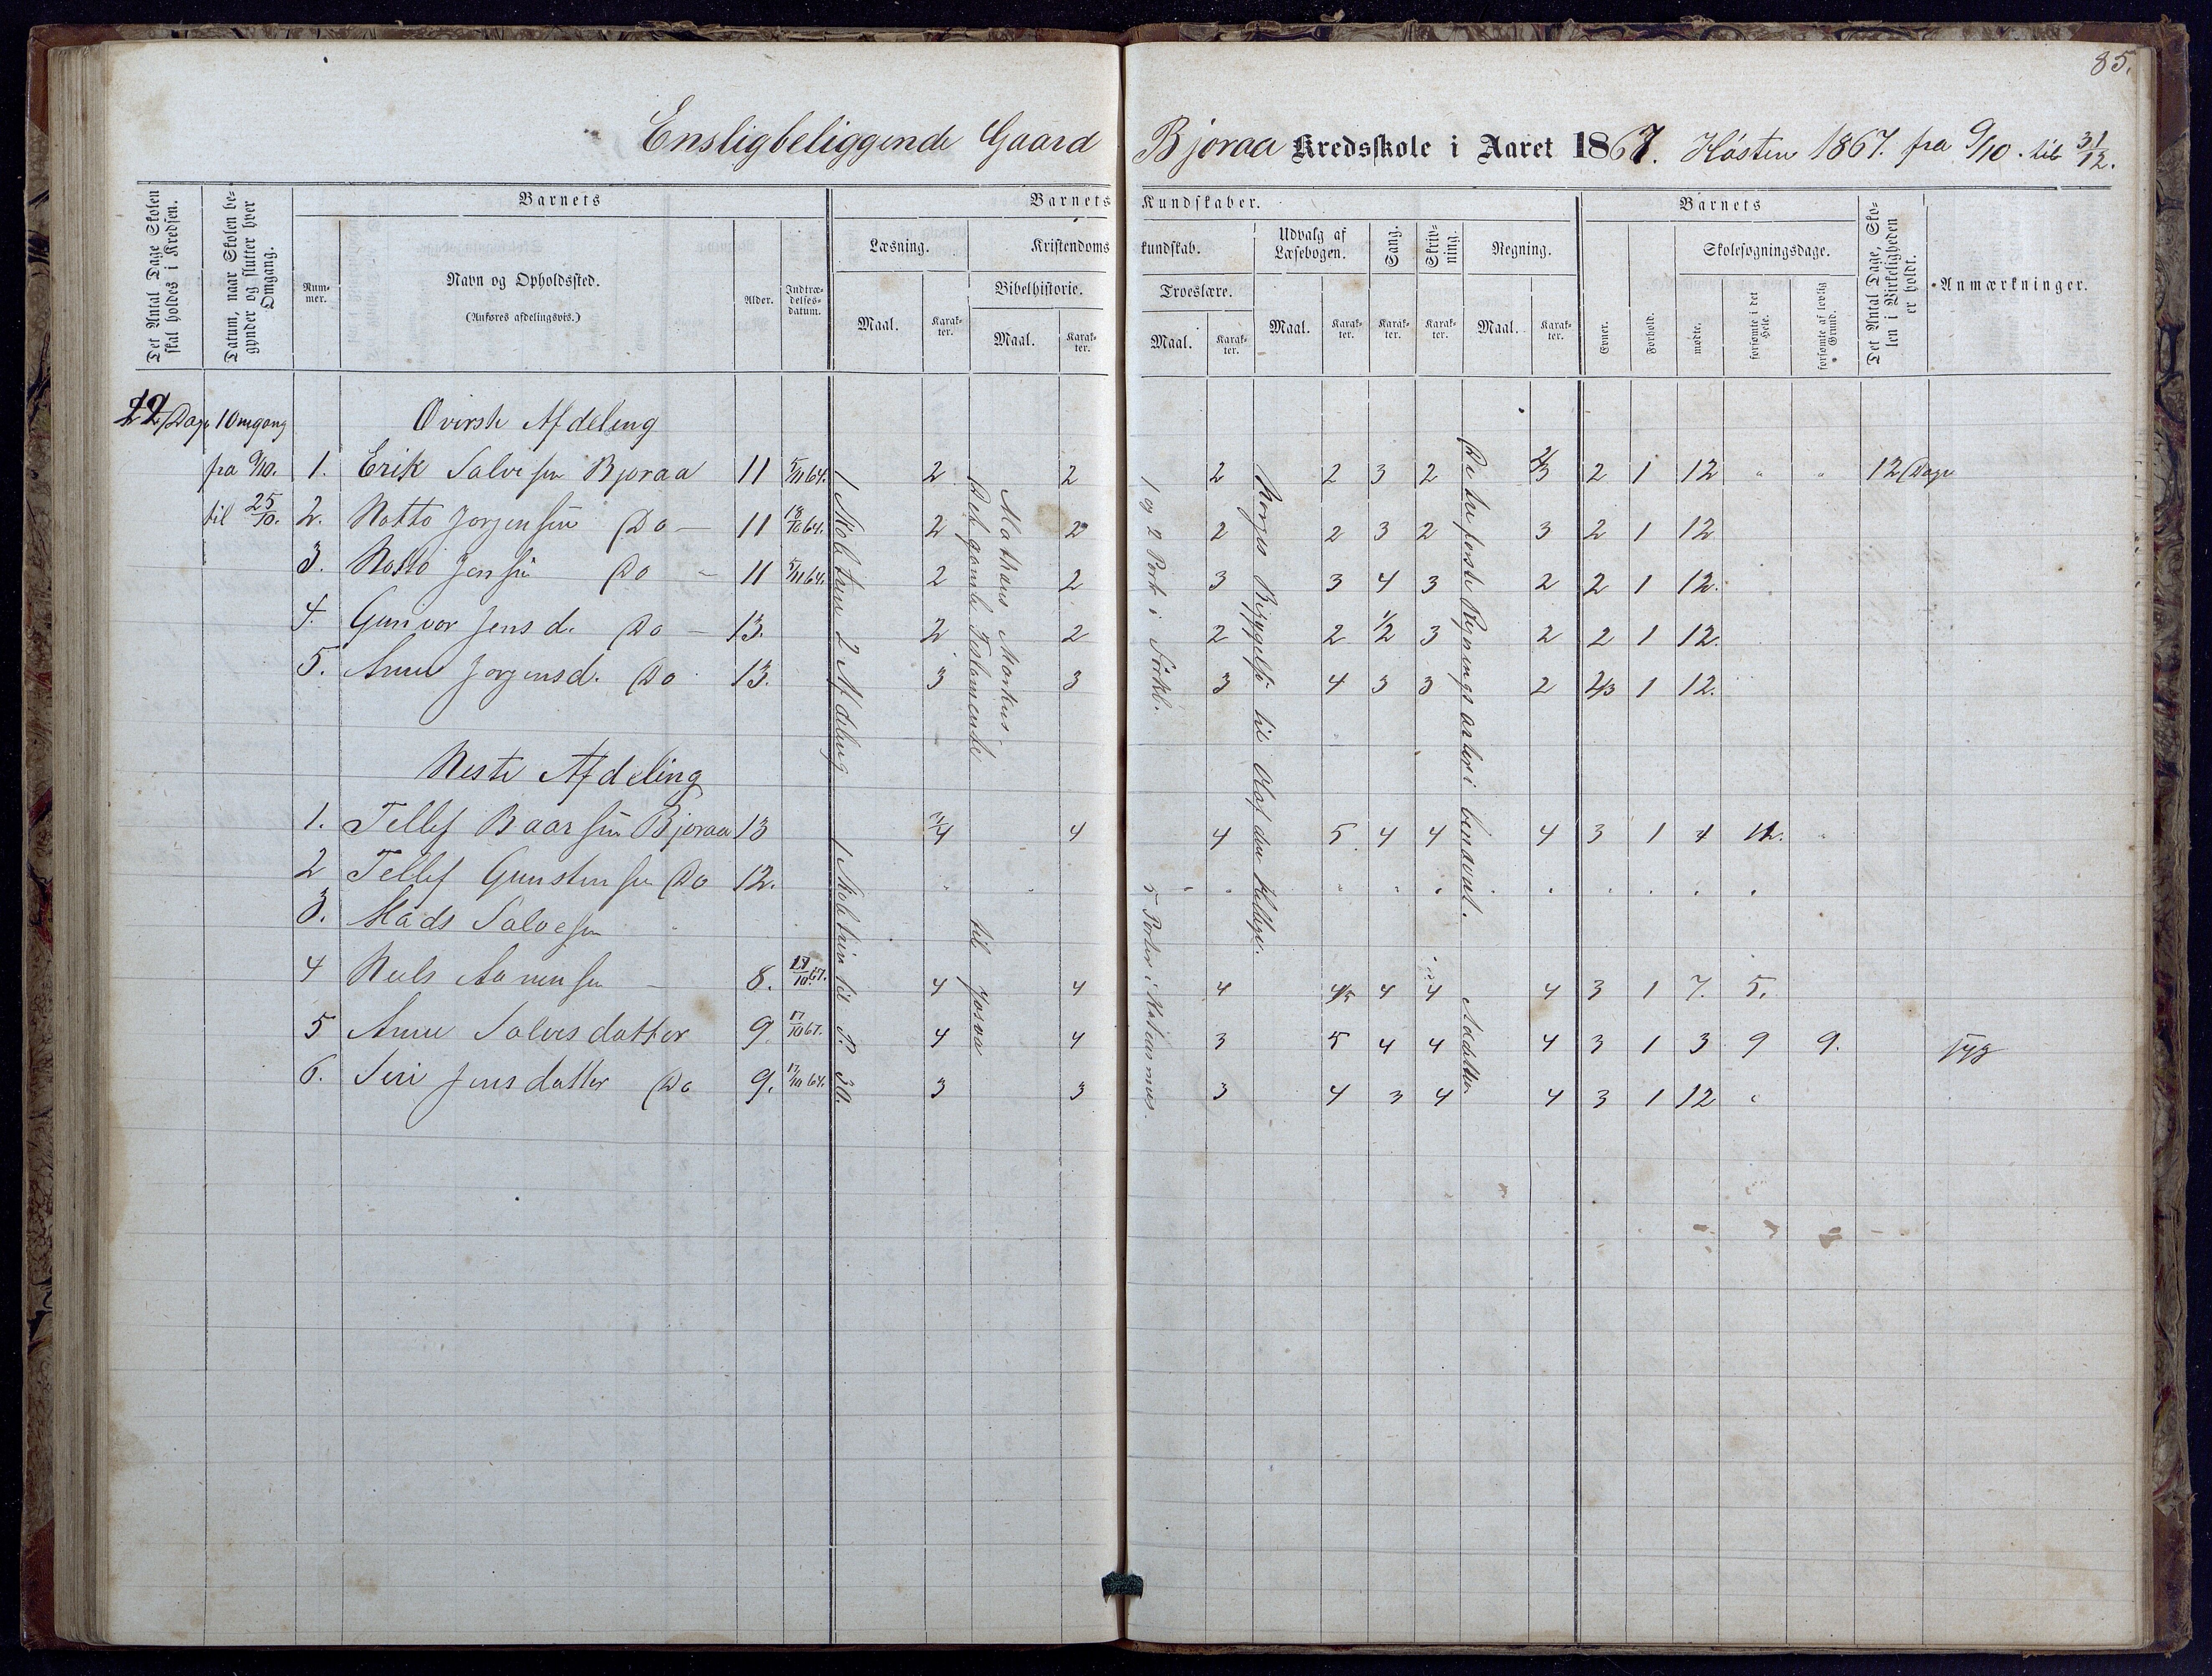 85.
Ensligbeliggende Gaard Bjoraa Kredsskole i Aaret 1867. Høsten 1867. fra 9/10. til 31/12.
Det Antal Dage Skolen skal holdes i Kredsen.
Datum, naar Skolen begynder og slutter hver Omgang.
Barnets
Nummer.
Navn og Opholdssted.
(Anføres afdelingsvis.)
Alder.
Indtrædelsesdatum.
Barnets Kundskaber.
Læsning.
Maal.
Karakter.
Kristendomskundskab.
Bibelhistorie.
Maal.
Karakter.
Troeslære.
Maal.
Karakter.
Udvalg af Læsebogen.
Maal.
Karakter.
Sang.
Karakter.
Skrivning.
Karakter.
Regning.
Maal.
Karakter.
Barnets
Evner.
Forhold.
Skolesøgningsdage.
mødte.
forsømte i det Hele.
forsømte af lovlig Grund.
Det Antal Dage, Skolen i Virkeligheden er holdt.
Anmærkninger.
Dage 1 Omgang Øverste Afdeling
fra 9/10. 1. Erik Salvesen Bjoraa 11 5/11 64. 2 2 2 2 3 2 2/3 2 1 12 " " 12 Dage
til 25/10. 2. Notto Jorgensen Do — 11 18/10 64. 2 2 2 2 3 2 3 2 1 12
3. Notto Jensen Do - 11 5/11 64. 2 2 3 3 4 3 2 2 1 12.
4. Gunvor Jensd. Do — 13. 2 2 2 2 1/2 3 2 2 1 12.
5. Anne Jorgensd. Do 13. 3 3 3 4 3 3 2 1 12.
Neste Afdeling
1. Tellef Baarsen Bjoraa 13 3/4 4 4 5. 4 4 4 3 1 12.
2 Tellef Gunstensen Do 12.
3. Mads Salvesen
4 Neels Aanensen — 8. 17/10 67. 4 4 4 4/5 4 4 4 3 1 7. 5.
5 Anne Salvesdatter 9. 17/10 67. 4 4 3 5 4 4 4 3 1 3 9 9.
6. Siri Jensdatter Do 9. 17/10 64. 3 3 3 4 3 4 4 3 1 12 "
2 Afdeling
Det gamle Testamente
Mathæus Markus
1 og 2 Part i Forkl.
Norges Bebyggelse til Olaf den Hellige.
De tre første Regningsarter i benævnt.
til P. 30.
til Josva
5 Parter i
Addition